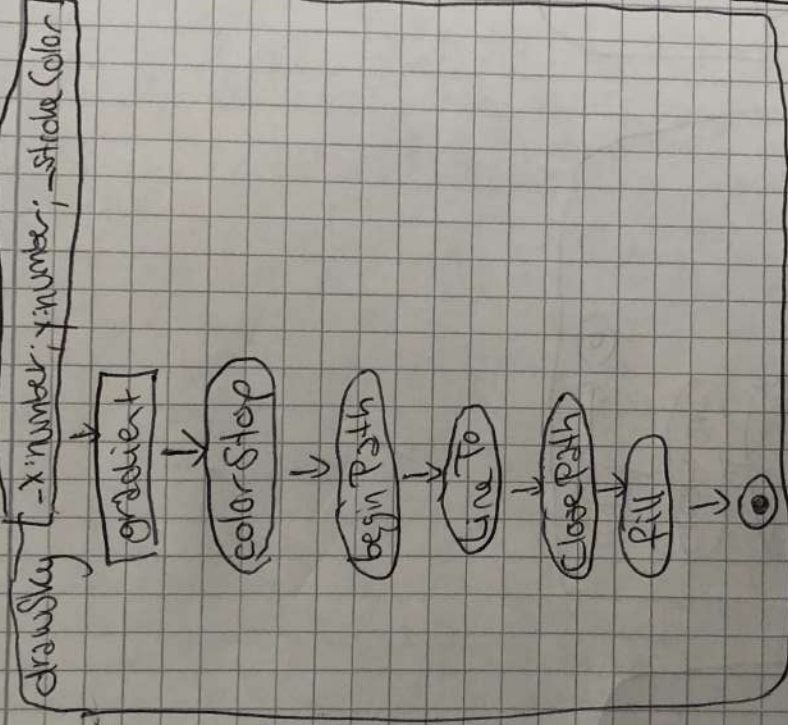 drawSky
_x:number; y:number; _strokeColor
gradient
colorStop
begin Path
Line To
Close Path
fill